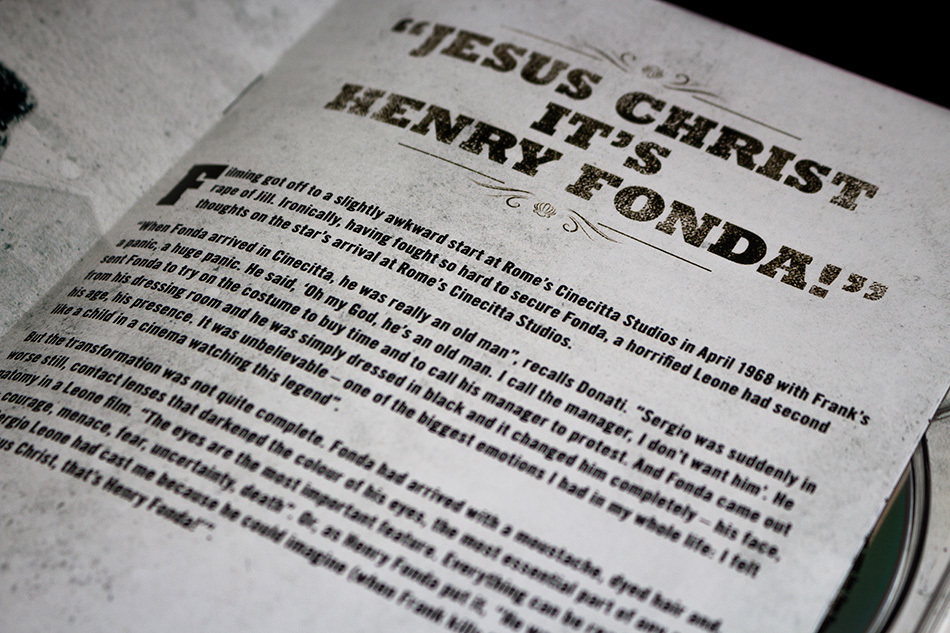 “JESUS CHRIST
IT'S
HENRY FONDA!”
Filming got off to a slightly awkward start at Rome's Cinecitta Studios in April 1968 with Frank's
rape of Jill. Ironically, having fought so hard to secure Fonda, a horrified Leone had second
thoughts on the star's arrival at Rome's Cinecitta Studios.
"When Fonda arrived in Cinecitta, he was really an old man", recalls Donati. "Sergio was suddenly in
a panic, a huge panic. He said, 'Oh my God, he's an old man. I call the manager, I don't want him'. He
sent Fonda to try on the costume to buy time and to call his manager to protest. And Fonda came out
from his dressing room and he was simply dressed in black and it changed him completely – his face,
his age, his presence. It was unbelievable – one of the biggest emotions I had in my whole life. I felt
like a child in a cinema watching this legend".
But the transformation was not quite complete. Fonda had arrived with a moustache, dyed hair and,
worse still, contact lenses that darkened the colour of his eyes, the most essential part of any
anatomy in a Leone film. "The eyes are the most important feature. Everything can be
courage, menace, fear, uncertainty, death". Or, as Henry Fonda put it, "He
Sergio Leone had cast me because he could imagine (when Frank
Christ, that's Henry Fonda!'".